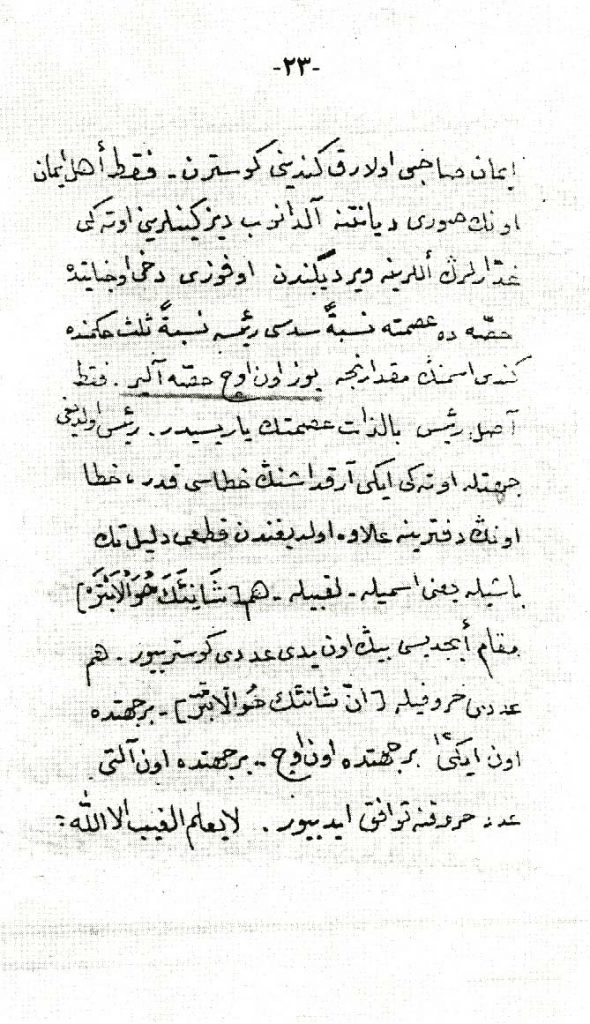 -٢٣-
إيمان صاحبى اولارق كندينى كوسترن - فقط أهل إيمان
اونك صورى ديانتنه آلدانوب ديزكينلرينى اوته كى
غدّارلرڭ أللرينه ويرديگندن اوفوزى دخى اوجنايتده
حصّه ده عصمته نسبةً سدسى رئيسه نسبةً ثلث حكمنده
كندى اسمنڭ مقدارنجه يوز اون اوچ حصّه آلير . فقط
آصل رئيس بالذات عصمتڭ ياريسيدر . رئيس اولديغى
جهتله اوته كى ايكى آرقداشنڭ خطاسى قدر، خطا
اونڭ دفترينه علاوه اولديغندن قطعى دليل تك
باشيله يعنى اسميله - لقبيله - هم [شَانِئَكَ هُوَ الْاَبْتَرُ]
مقام أبجديسى بيڭ اون يدى عددى كوستريیور . هم
عددى حروفيله [انّ شانئك هُوَ الْاَبْتَرُ] - بر جهتده
اون ايكى ١٢ بر جهتده اون اوچ - بر جهتده اون آلتى
عدد حروفنه توافق ايدييور . لا يعلم الغيب الا الله :